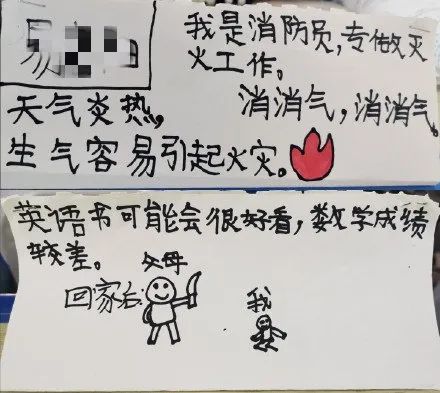 易
我是消防员,专做灭
火工作。
天气炎热,
消消气,消消气。
生气容易引起火灾。
英语书可能会很好看,数学成绩
较差。
父母
回家后:
我